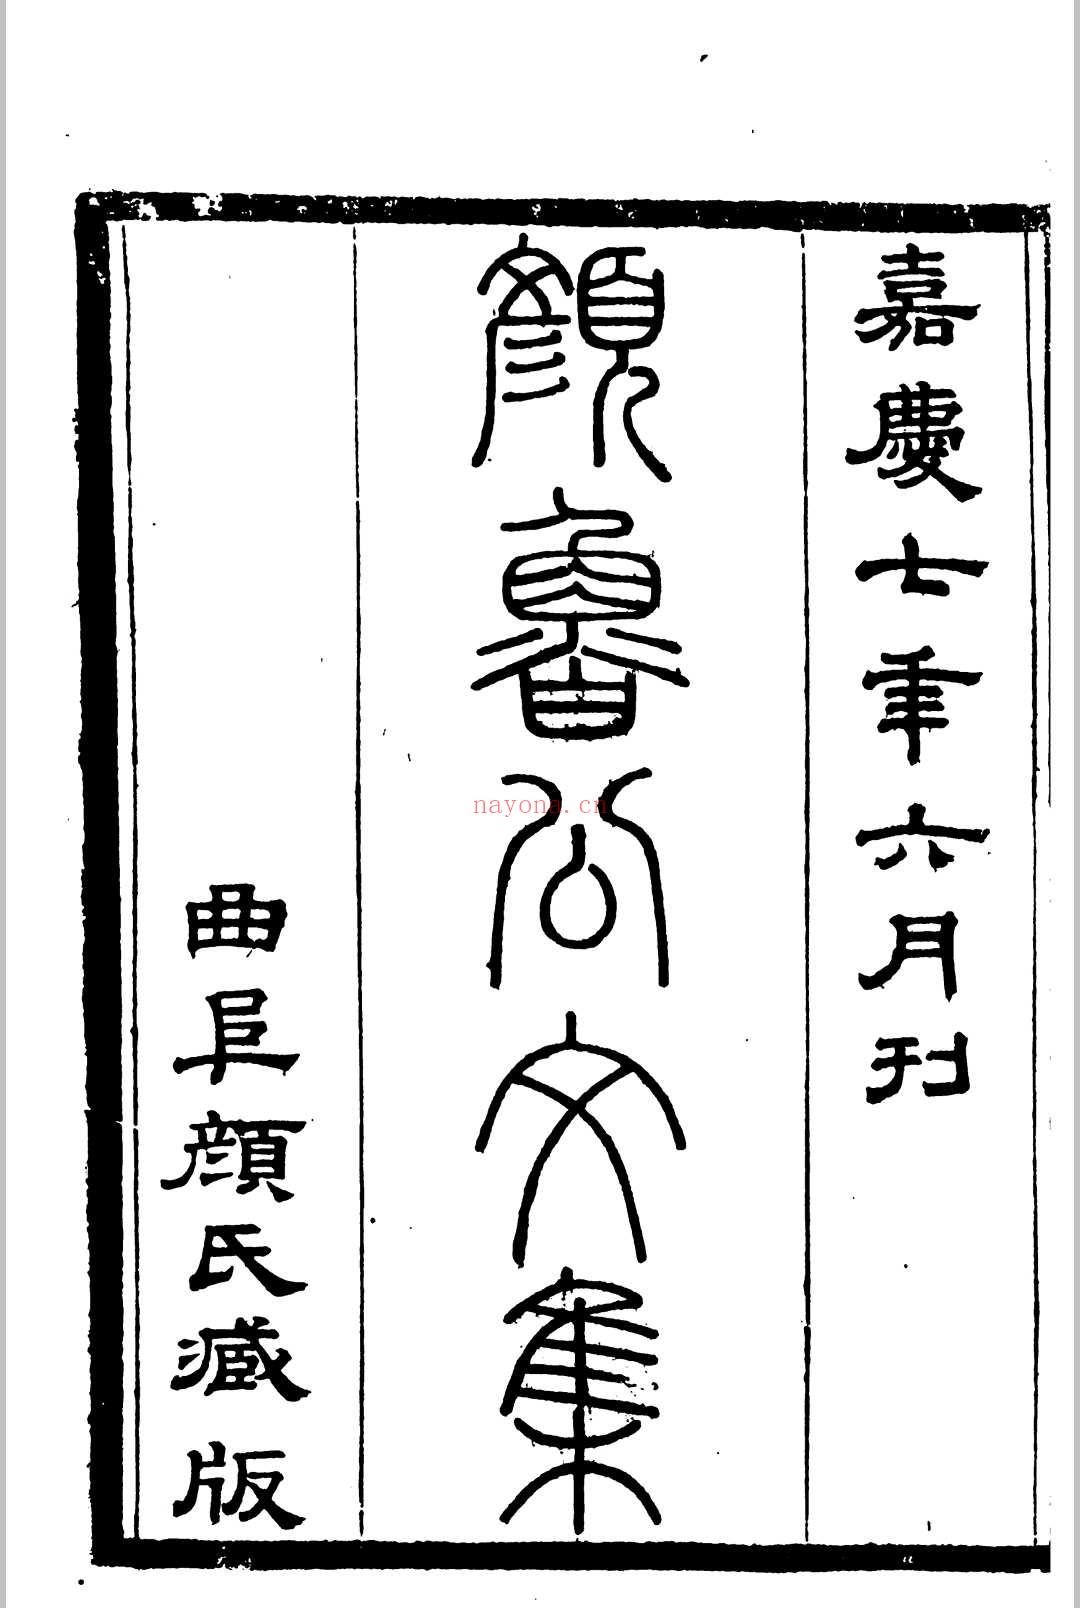 嘉慶七年六月刊
顏魯公文集
曲阜顏氏藏版
nayona.cn